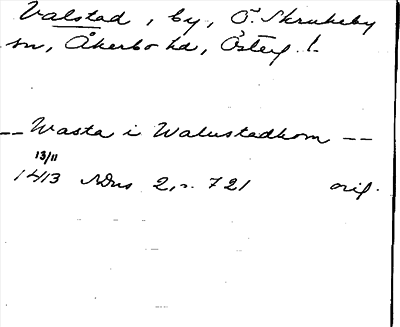 Valstad, by, Ö. Skrukeby
sn, Åkerbo hd, Östergl.
__ Wasta i Walustadhom __
13/11
1413 NDns 2, s. 721 orig.